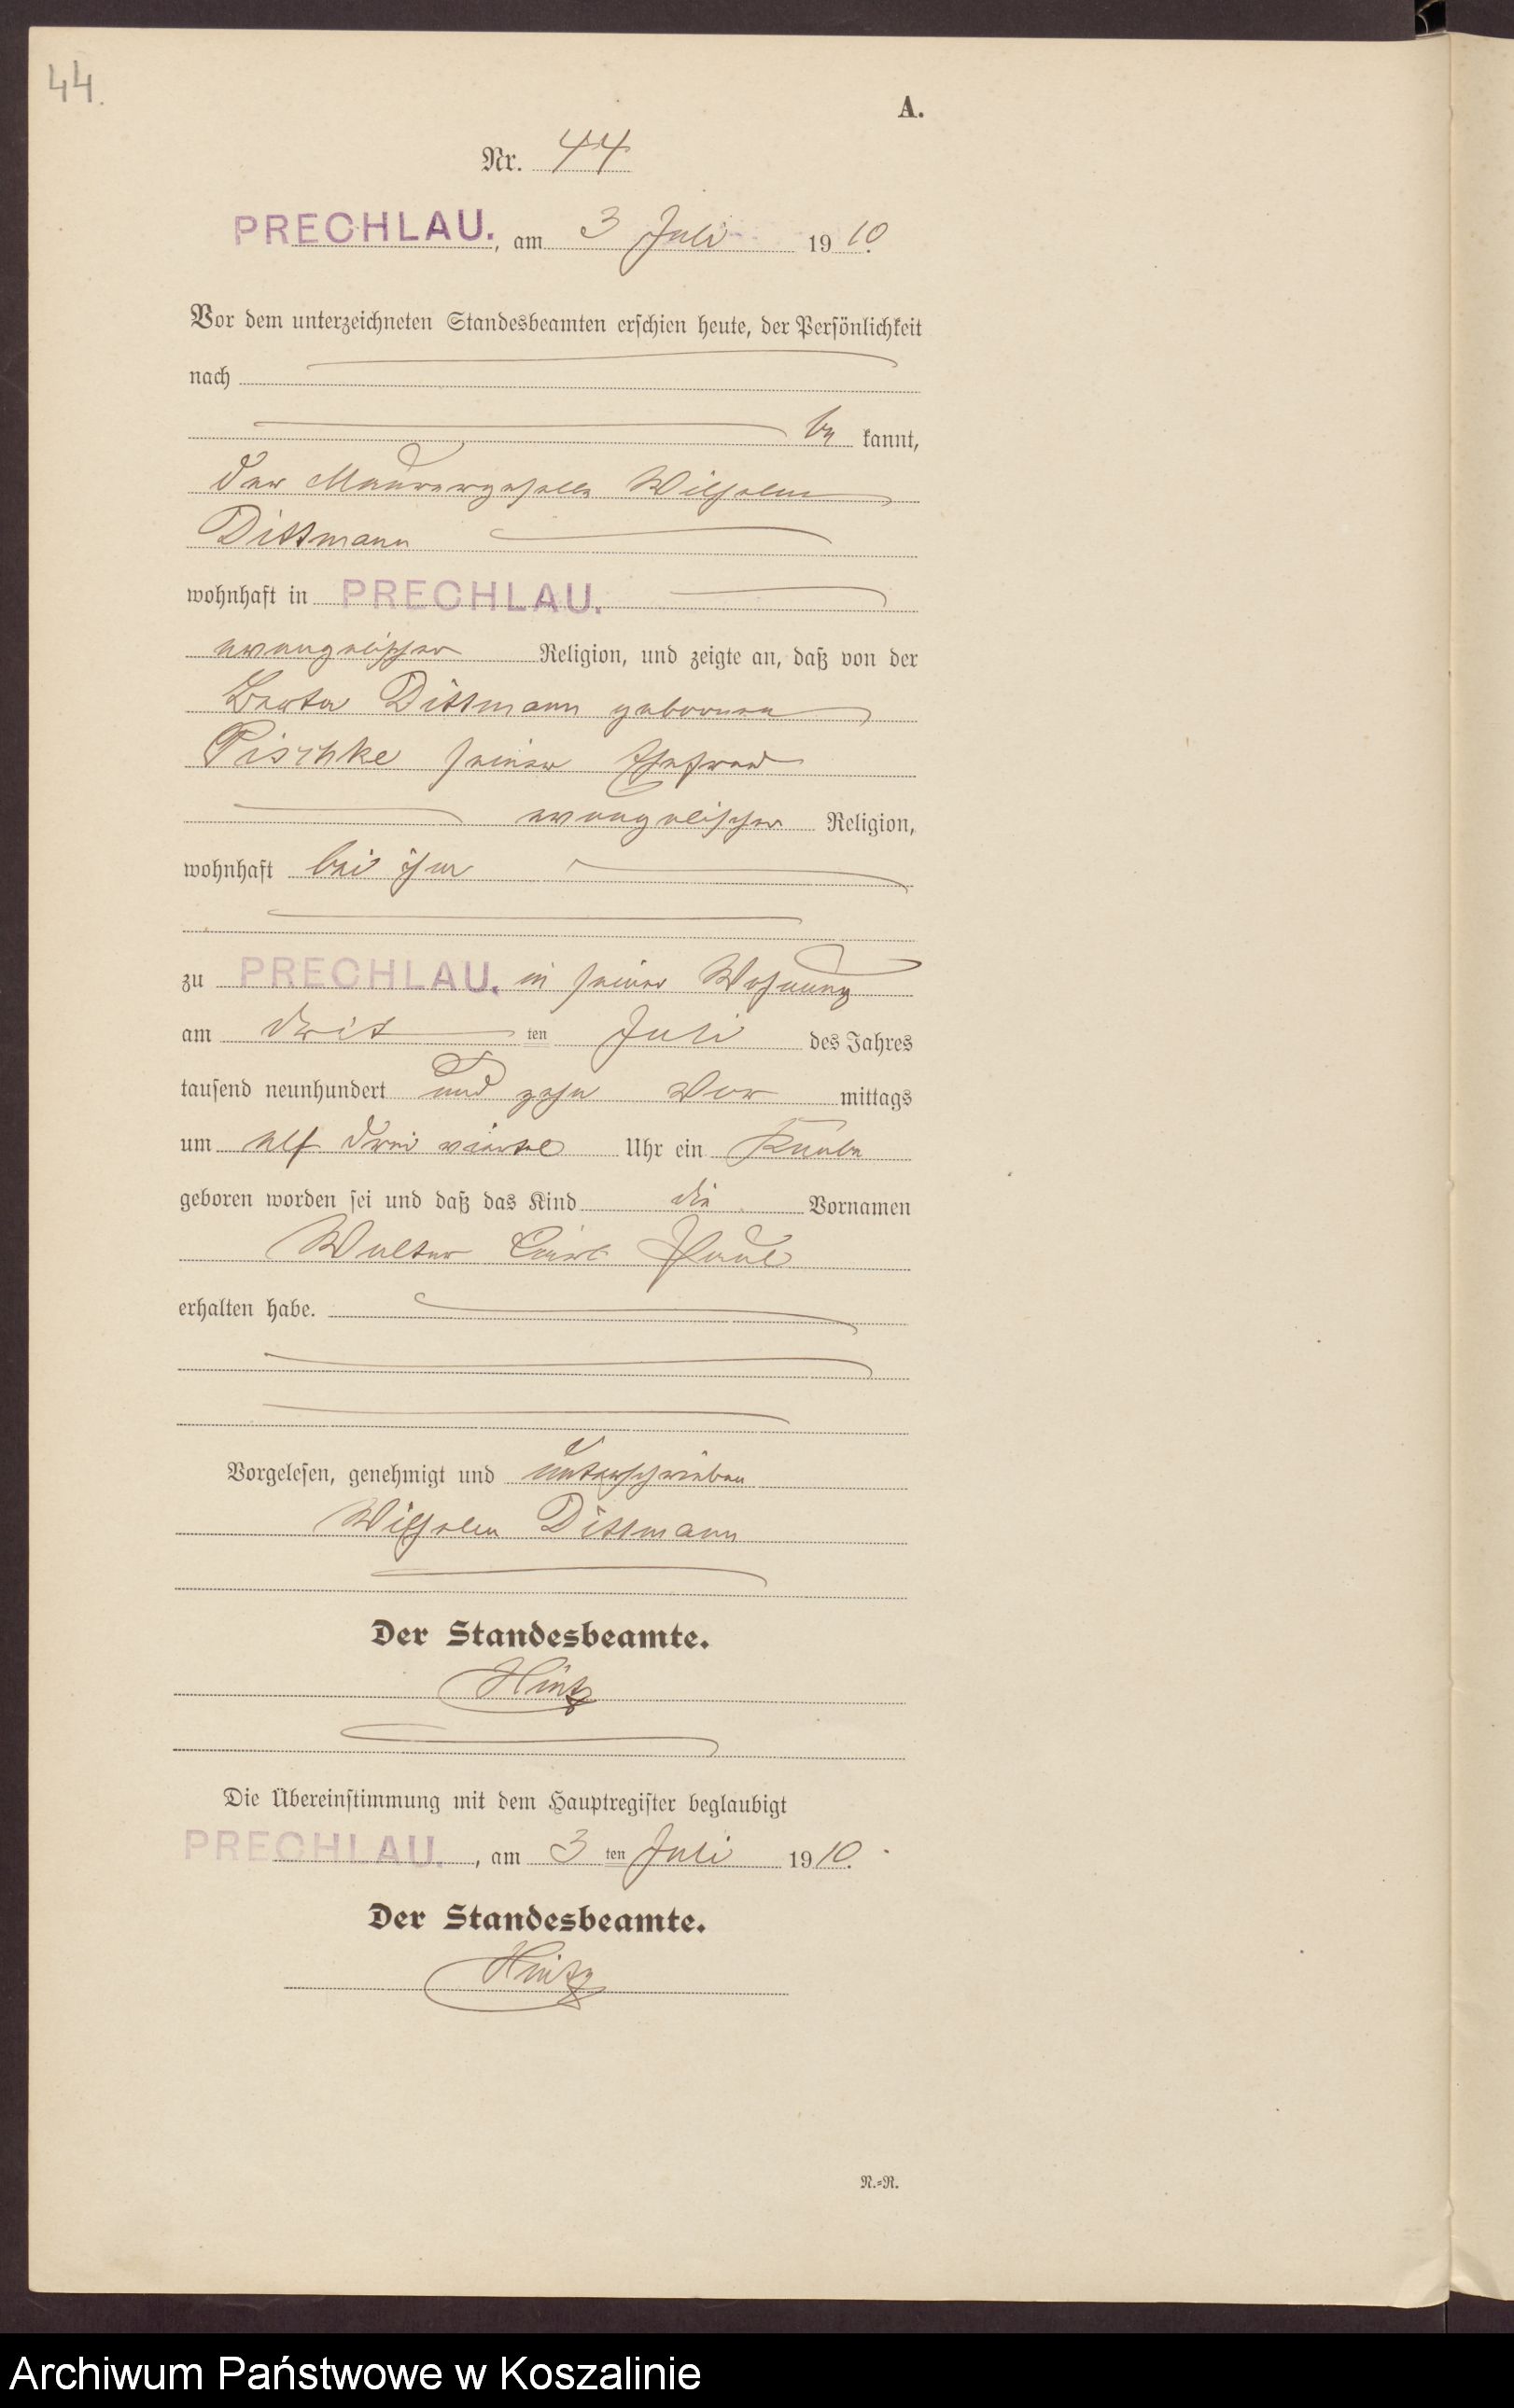 44.
A.
Nr. 44
PRECHLAU., am 3 Juli 1910.
Vor dem unterzeichneten Standesbeamten erschien heute, der Persönlichkeit
nach
be kannt,
der Maurergeselle Wilhelm
Dittmann
wohnhaft in PRECHLAU.
evangelischer Religion, und zeigte an, daß von der
Berta Dittmann geborenen
Pischke seiner Ehefrau
evangelischer Religion,
wohnhaft bei ihm
zu PRECHLAU. in seiner Wohnung
am drit ten Juli des Jahres
tausend neunhundert und zehn Vor mittags
um elf drei viertel Uhr ein Knabe
geboren worden sei und daß das Kind die Vornamen
Walter Carl Paul
erhalten habe.
Vorgelesen, genehmigt und unterschrieben
Wilhelm Dittmann
Der Standesbeamte.
Hintz
Die Übereinstimmung mit dem Hauptregister beglaubigt
PRECHLAU., am 3 ten Juli 1910.
Der Standesbeamte.
Hintz
N.=R.
Archiwum Państwowe w Koszalinie